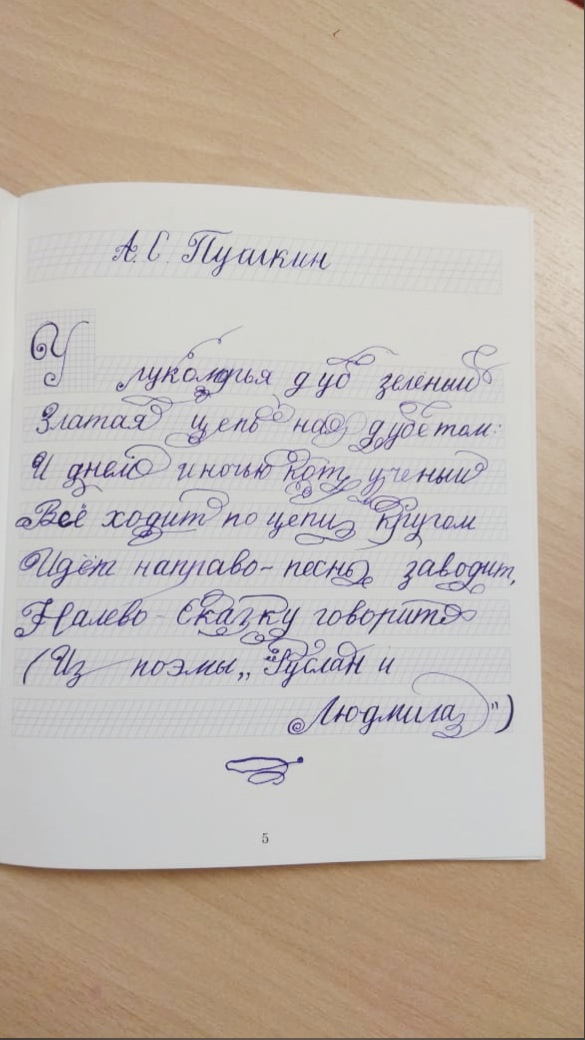 А. С. Пушкин
У лукоморья дуб зелёный
Златая цепь на дубе том:
И днём и ночью кот ученый
Всё ходит по цепи кругом
Идёт направо - песнь заводит,
Налево - сказку говорит
(Из поэмы „Руслан и
Людмила")
5